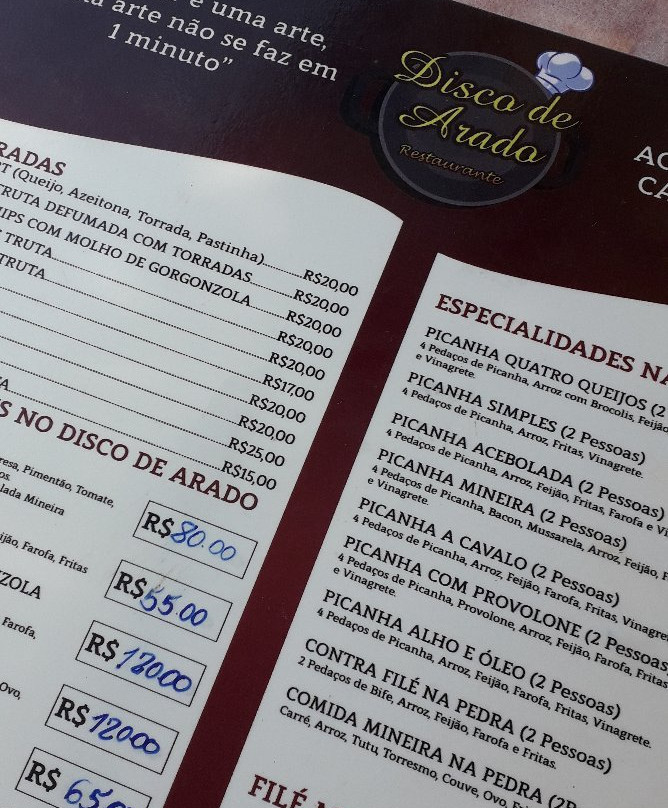 é uma arte,
arte não se faz em
1 minuto"
Disco de
Arado
Restaurante
AC
CA
RADAS
T (Queijo, Azeitona, Torrada, Pastinha)..........R$20,00
TRUTA DEFUMADA COM TORRADAS..........R$20,00
HIPS COM MOLHO DE GORGONZOLA..........R$20,00
TRUTA..........R$20,00
TRUTA..........R$20,00
R$17,00
R$20,00
R$20,00
R$25,00
A..........R$15,00
S NO DISCO DE ARADO
resa, Pimentão, Tomate,
os.
lada Mineira
R$80.00
ijão, Farofa, Fritas
R$55.00
NZOLA
R$120.00
Farofa,
R$120.00
Ovo,
R$ 65.0
ESPECIALIDADES NA
PICANHA QUATRO QUEIJOS (2
4 Pedaços de Picanha, Arroz com Brocolis, Feijão
e Vinagrete.
PICANHA SIMPLES (2 Pessoas)
4 Pedaços de Picanha, Arroz, Fritas, Vinagrete.
PICANHA ACEBOLADA (2 Pessoas)
4 Pedaços de Picanha, Arroz, Feijão, Fritas, Farofa e Vi
PICANHA MINEIRA (2 Pessoas)
4 Pedaços de Picanha, Bacon, Mussarela, Arroz, Feijão, F
e Vinagrete.
PICANHA A CAVALO (2 Pessoas)
4 Pedaços de Picanha, Arroz, Feijão, Farofa, Fritas, Vinagrete
PICANHA COM PROVOLONE (2 Pessoas
4 Pedaços de Picanha, Provolone, Arroz, Feijão, Farofa, Fritas
e Vinagrete.
PICANHA ALHO E ÓLEO (2 Pessoas)
4 Pedaços de Picanha, Arroz, Feijão, Farofa, Fritas, Vinagrete.
CONTRA FILÉ NA PEDRA (2 Pessoas)
2 Pedaços de Bife, Arroz, Feijão, Farofa e Fritas.
COMIDA MINEIRA NA PEDRA (2
Carré, Arroz, Tutu, Torresmo, Couve, Ovo,
FILÉ